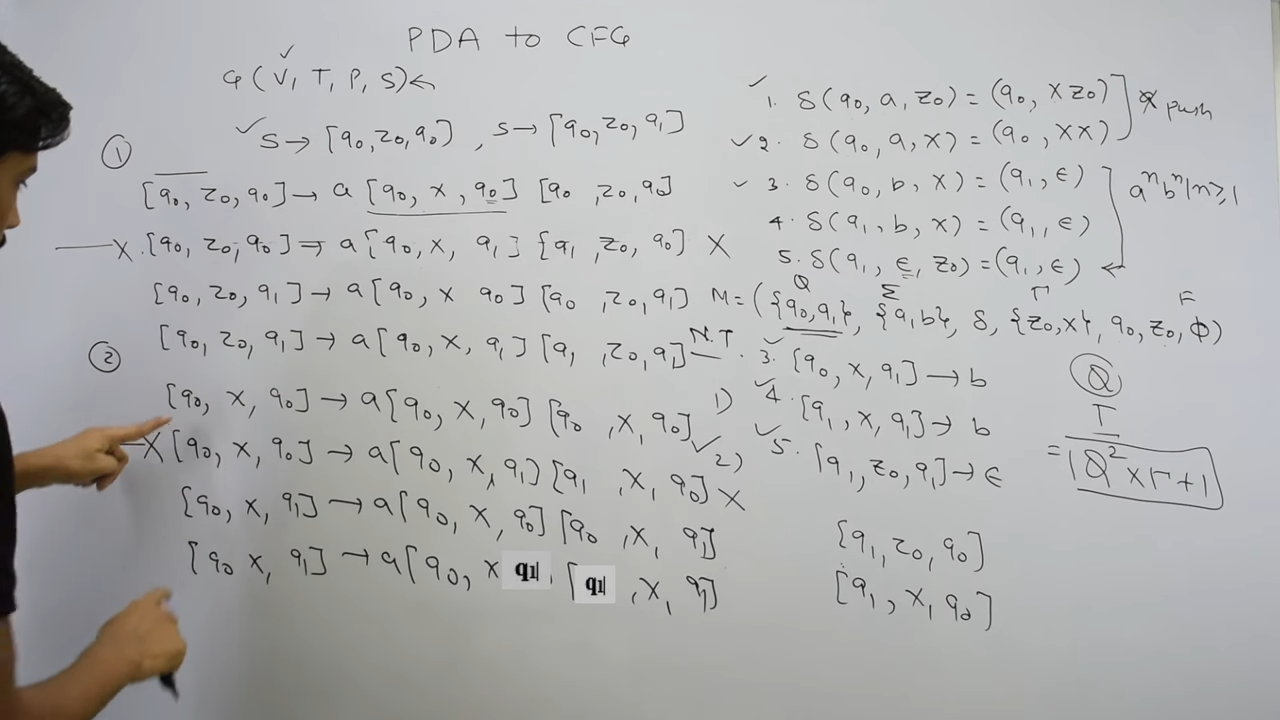 PDA to CFG
G (V, T, P, S) ←
✓ S → [q0, z0, q0) , S → [q0, z0, q1]
①
[q0, z0, q0] → a [q0, x, q0] [q0, z0, q0]
X. [q0, z0, q0] → a[q0, x, q1] [q1, z0, q0] X
[q0, z0, q1] → a[q0, x q0] [q0, z0, q1]
[q0, z0, q1] → a[q0, x, q1] [q1, z0, q1]
②
[q0, x, q0] → a[q0, x, q0] [q0, x, q0]
X [q0, x, q0] → a[q0, x, q1) [q1, x, q0] X
[q0, x, q1] → a[q0, x, q0] [q0, x, q1]
[q0 x, q1] → a[q0, x q1 . [q1 , x, q1]
✓ 1. δ(q0, a, z0) = (q0, xz0)
✓ 2. δ(q0, a, x) = (q0, xx)
push
✓ 3. δ(q0, b, x) = (q1, ε)
4. δ(q1, b, x) = (q1, ε)
5. δ(q1, ε, z0) = (q1, ε) ←
aⁿbⁿ|n≥1
Q Σ Γ F
M = ({q0, q1}, {a, b}, δ, {z0, x}, q0, z0, ϕ)
N.T
✓ 3. [q0, x, q1] → b
1) ✓ 4. [q1, x, q1] → b
✓ 2) ✓ 5. [q1, z0, q1] → ε
Q
Γ
= |Q² × Γ + 1|
[q1, z0, q0]
[q1, x, q0]